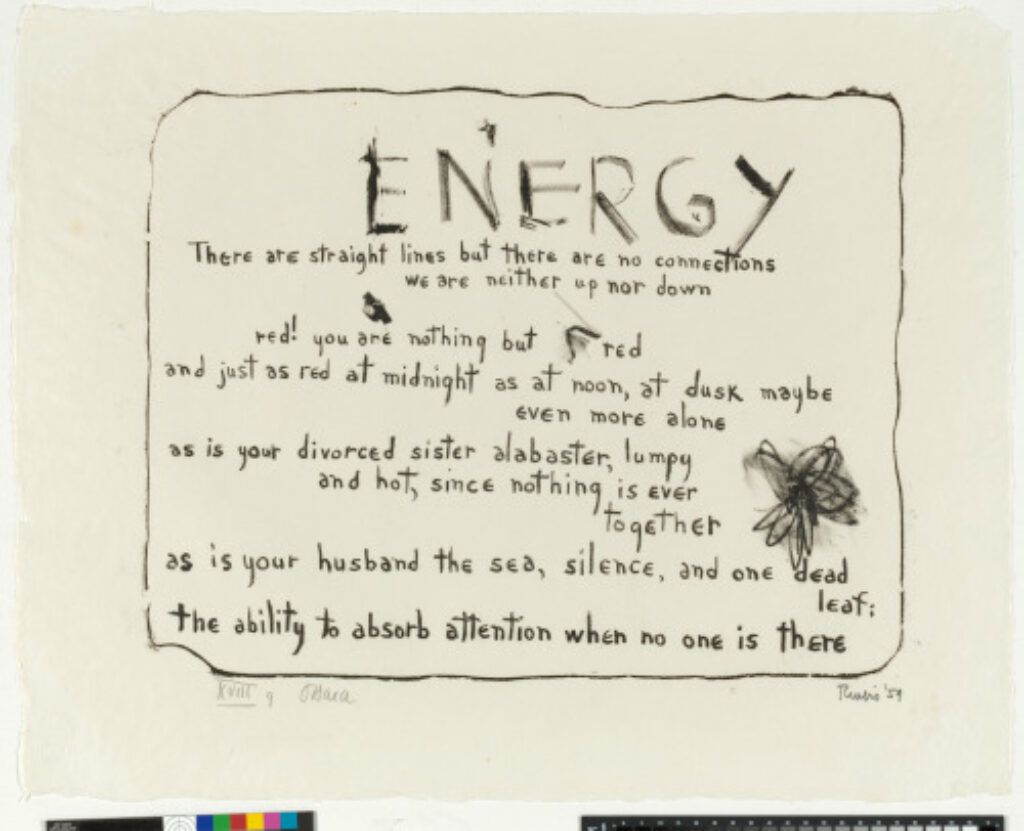 ENERGY
There are straight lines but there are no connections
we are neither up nor down
red! you are nothing but red
and just as red at midnight as at noon, at dusk maybe
even more alone
as is your divorced sister alabaster, lumpy
and hot, since nothing is ever
together
as is your husband the sea, silence, and one dead
leaf:
the ability to absorb attention when no one is there
XVIII 9 O'Hara
'59